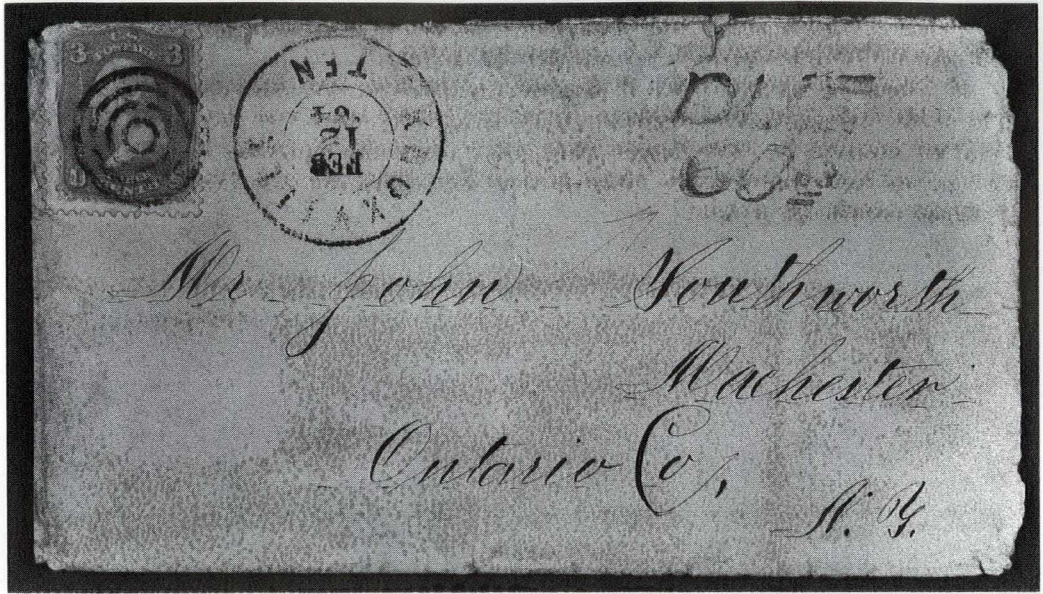 U.S.
POSTAGE
3 3
CENTS
KNOXVILLE
TEN
FEB
12
64
DUE
Mr John Southworth
Machester
Ontario Co,
N. Y.